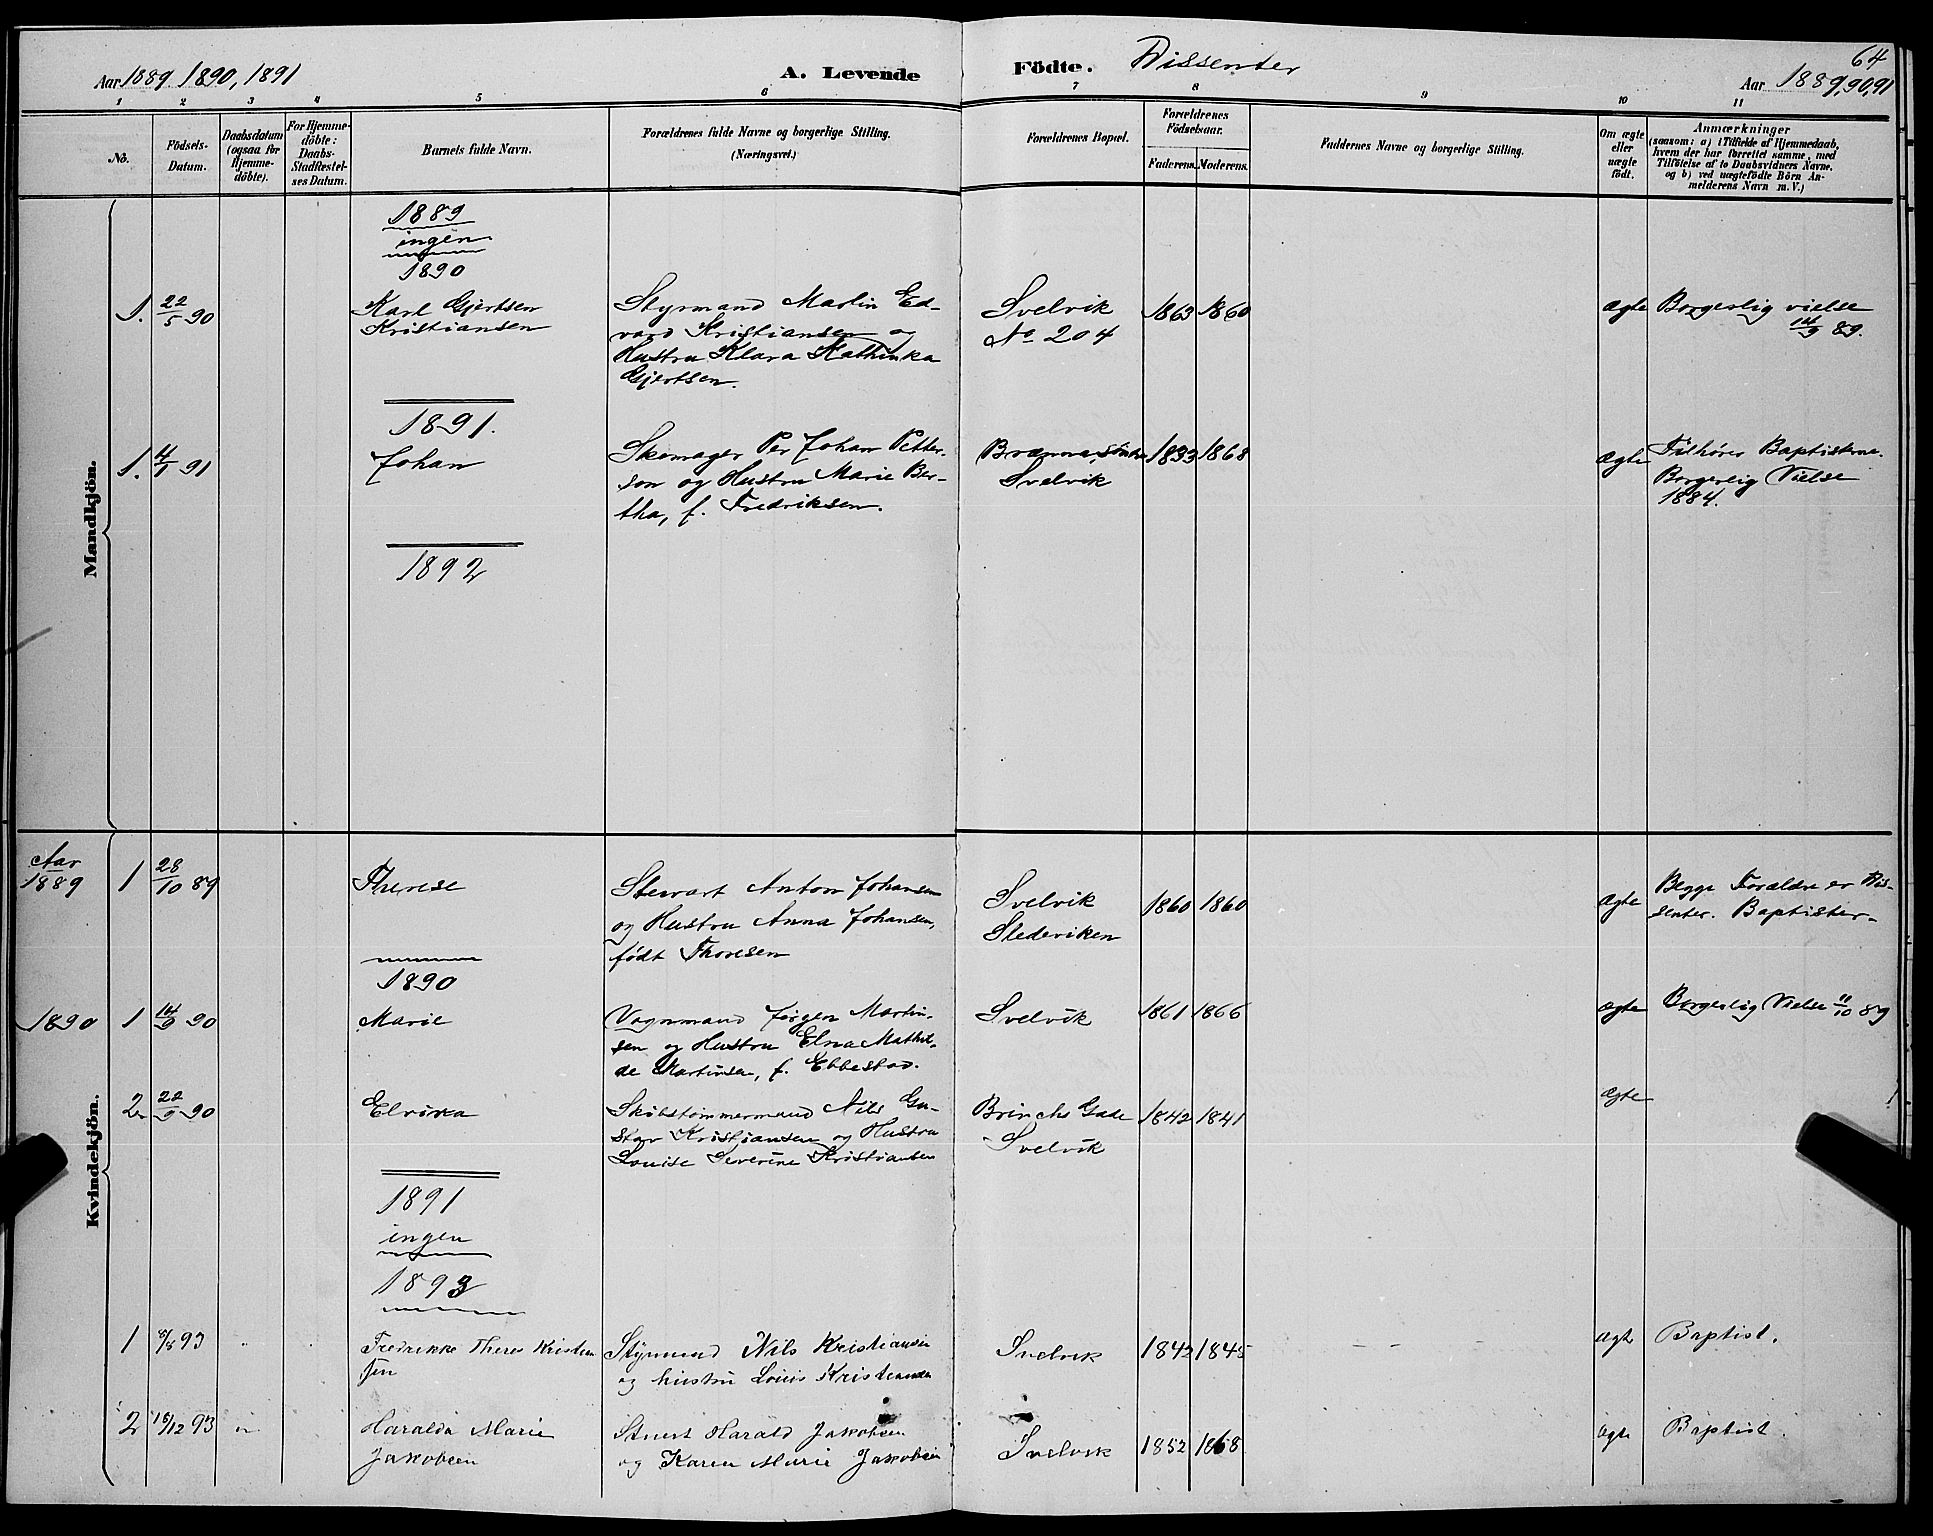 Aar 1889, 1890, 1891
A. Levende Födte. Dissenter
64
Aar 1889, 90, 91
1 2 3 4 5 6 7 8 9 10 11
No.
Födsels-
Datum.
Daabsdatum
(ogsaa for
Hjemme-
döbte).
For Hjemme-
döbte:
Daabs-
Stadfæstel-
ses Datum.
Barnets fulde Navn.
Forældrenes fulde Navne og borgerlige Stilling.
(Næringsvei.)
Forældrenes Bopæl.
Forældrenes
Födselsaar.
Faderens. Moderens.
Faddernes Navne og borgerlige Stilling.
Om ægte
eller
uægte
födt.
Anmærkninger
(saasom: a) i Tilfælde af Hjemmedaab,
hvem der har forrettet samme, med
Tilföielse af to Daabsvidners Navne,
og b) ved uægtefödte Börn An-
melderens Navn m. V.)
Mandkjön.
1889
ingen
1890
1. 22/5 90
Karl Gjertsen
Kristiansen
Styrmand Martin Ed-
vard Kristiansen og
Hustru Klara Kathinka
Gjertsen.
Svelvik
No. 204
1863 1860
ægte
Borgerlig vielse
14/9 89.
1891.
1. 4/1 91
Johan
Skomager Per Johan Petter-
son og Hustru Marie Ber-
tha, f. Fredriksen.
Svelvik
1833 1868
ægte
Tilhører Baptisterne.
Borgerlig Vielse
1884.
1892
Kvindekjön.
Aar
1889
1 28/10 89
Therese
Stewart Anton Johansen
og Hustru Anna Johansen,
født Thoresen
Svelvik
Slederiken
1860 1860
ægte
Begge Forældre er Dis-
senter. Baptister
1890
1890 1 14/9 90
Marie
Vognmand Jørgen Martin-
sen og Hustru Elna Mathil-
de Martinsen, f. Ebbestad.
Svelvik
1861 1866
ægte
Borgerlig Vielse 11/10 89
2 22/9 90
Elvira
Skibstømmermand Nils Gu-
stav Kristiansen og Hustru
Louise Severine Kristiansen
Brinchs Gade
Svelvik
1842 1841
ægte
1891
ingen
1893
1 8/8 93
Fredrikke Theres Kristian
sen
Styrmand Nils Kristiansen
og hustru Louis Kristiansen
Svelvik
1842 1845
ægte
Baptist.
2 18/12 93
Haralda Marie
Jakobsen
Stuert Harald Jakobsen
og Karen Marie Jakobsen
Svelvik
1852 1868
ægte
Baptist.